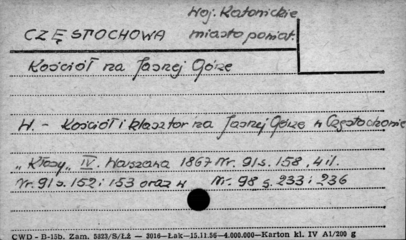 Woj. Katowickie
CZĘSTOCHOWA miasto powiat.
Kościół na Jasnej Górze
H. - Kościół i klasztor na Jasnej Górze w Częstochowie
„Kłosy" IV. Warszawa 1867 Nr. 91 s. 158, 4 il.
Nr. 91 s. 152 i 153 oraz w Nr. 98 s. 233 i 236
CWD - B-15b. Zam. 5323/S/Łż — 3016—Łak—15.11.56—4.000.000—Karton kl. IV A1/200 g